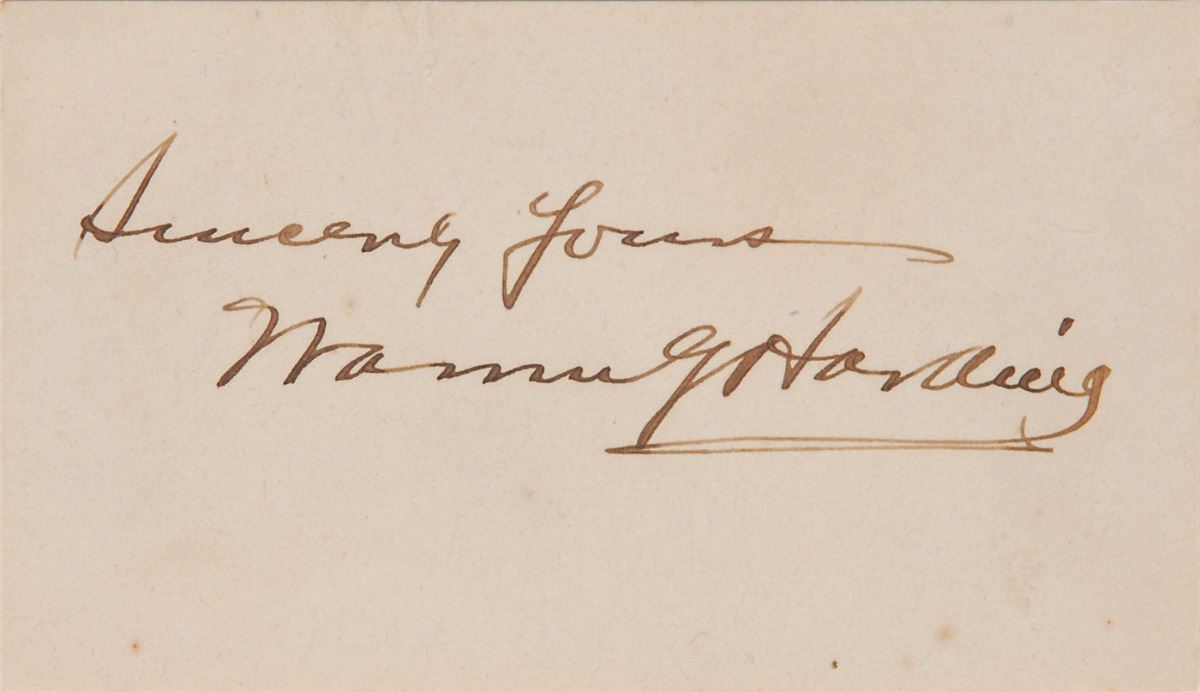 Sincerely Yours
Warren G Harding